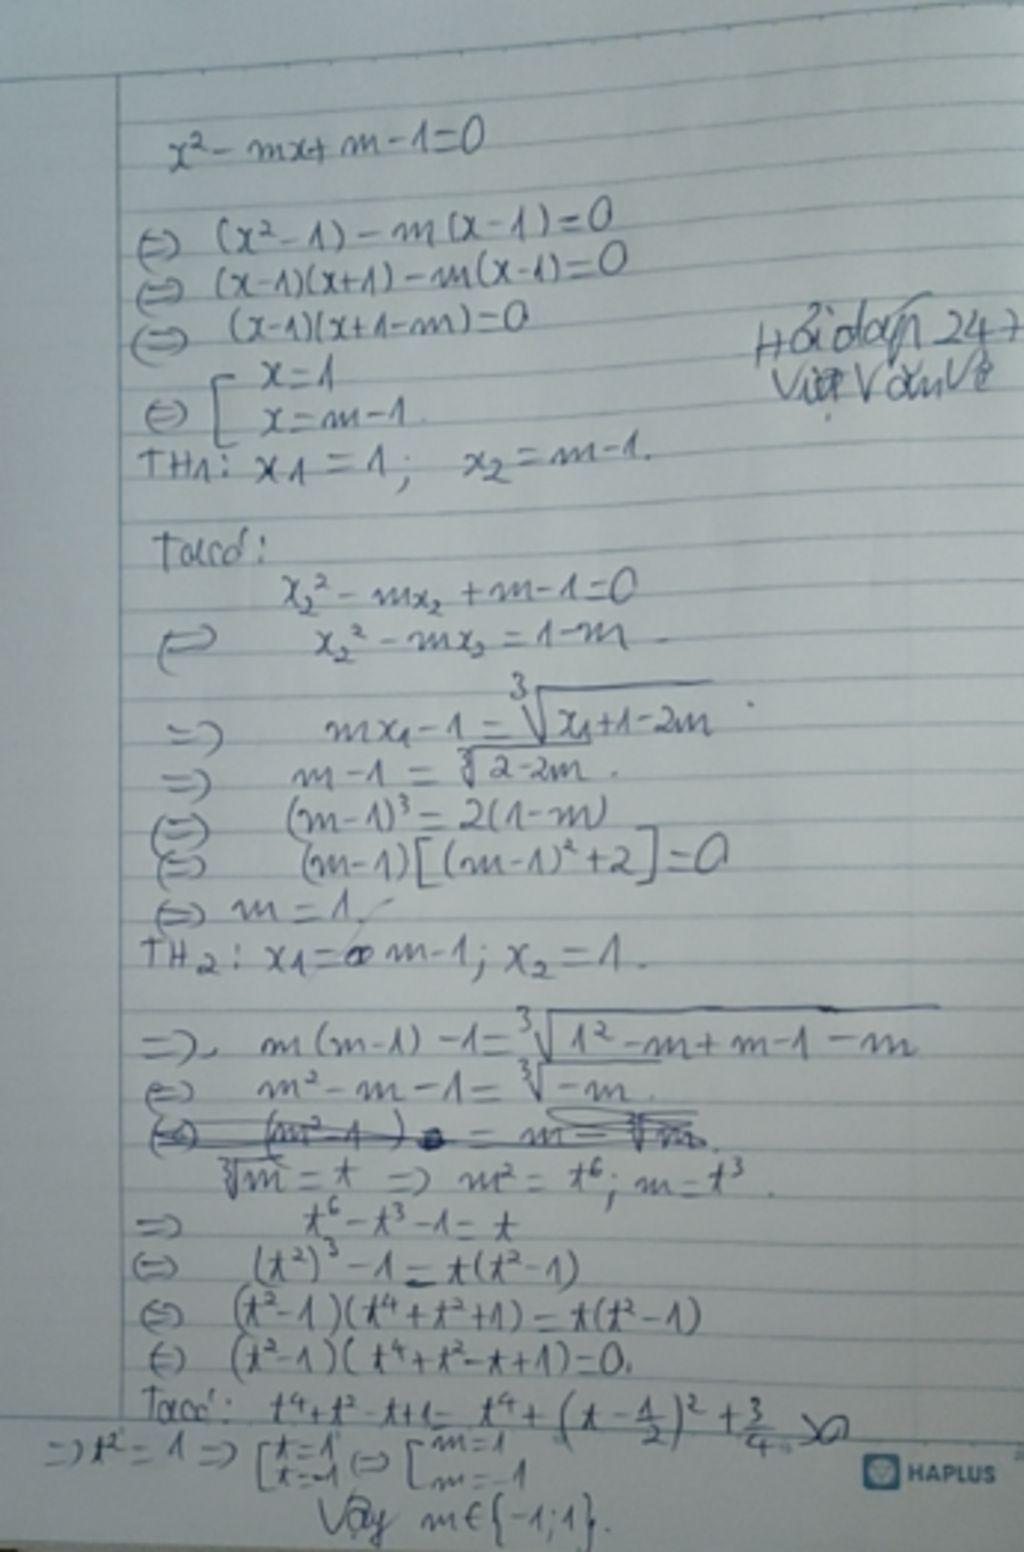 x² - mx + m - 1 = 0
⇔ (x² - 1) - m(x - 1) = 0
⇔ (x-1)(x+1) - m(x-1) = 0
⇔ (x-1)(x+1-m) = 0
Hỏi đáp 247
Việt Văn Vẻ
⇔ [ x = 1
x = m - 1.
TH1: x1 = 1; x2 = m - 1.
Ta có:
x2² - mx2 + m - 1 = 0
⇔ x2² - mx2 = 1 - m
⇒ mx1 - 1 = ∛(x1 + 1 - 2m)
⇒ m - 1 = ∛(2 - 2m).
⇔ (m-1)³ = 2(1-m)
⇔ (m-1)[(m-1)² + 2] = 0
⇔ m = 1.
TH2: x1 = m - 1; x2 = 1.
⇒ m(m-1) - 1 = ∛(1² - m + m - 1 - m)
⇔ m² - m - 1 = ∛(-m)
∛m = t ⇒ m² = t⁶; m = t³.
⇒ t⁶ - t³ - 1 = t
⇔ (t²)³ - 1 = t(t² - 1)
⇔ (t²-1)(t⁴ + t² + 1) = t(t² - 1)
⇔ (t²-1)(t⁴ + t² - t + 1) = 0.
Ta có: t⁴ + t² - t + 1 = t⁴ + (t - 1/2)² + 3/4 > 0
⇒ t² = 1 ⇒ [ t = 1 ⇔ [ m = 1
t = -1 m = -1
HAPLUS
Vậy m ∈ {-1; 1}.